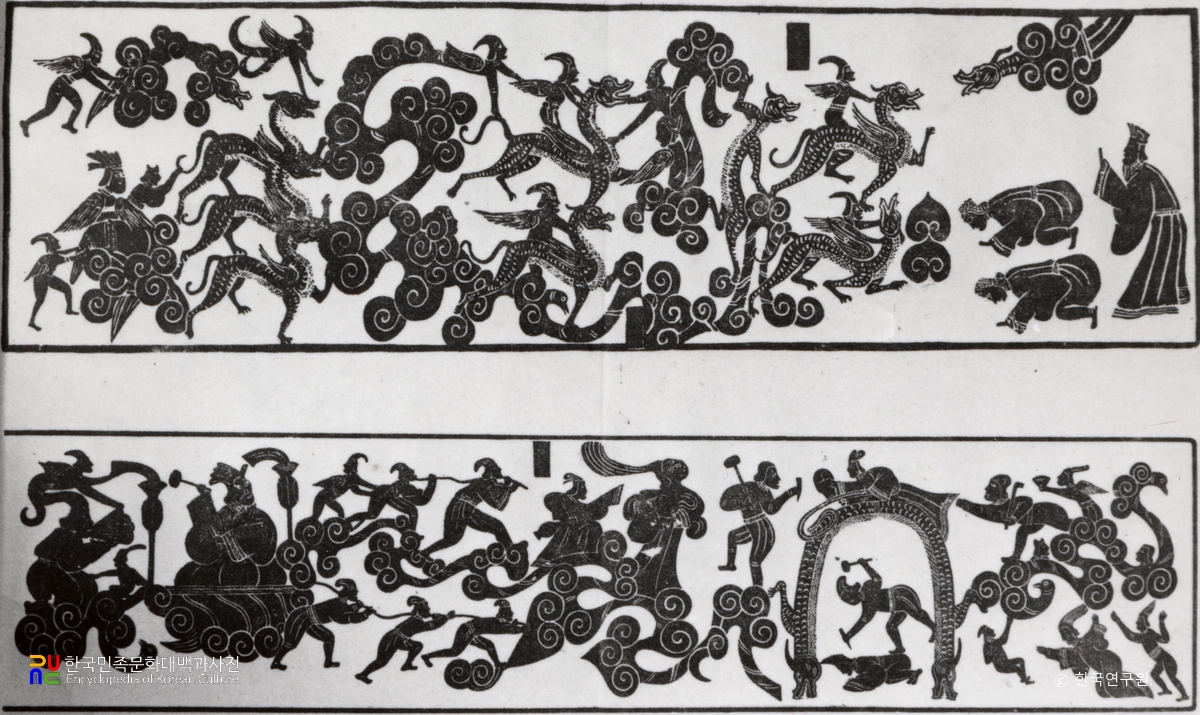 한국민족문화대백과사전
Encyclopedia of Korean Culture
© 한국연구원